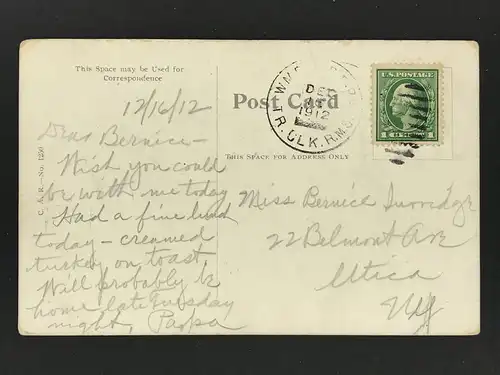 This Space may be Used for
Correspondence
12/16/12
Dear Bernice-
Wish you could
be with me today
Had a fine lunch
today - creamed
turkey on toast
Will probably be
home late Tuesday
night, Papa
C. & R.-No. 1250
Post Card
This Space for Address Only
DEC
1912
TR. CLK. R.M.S.
U.S. POSTAGE
Miss Bernice
22 Belmont Ave
Utica
NY